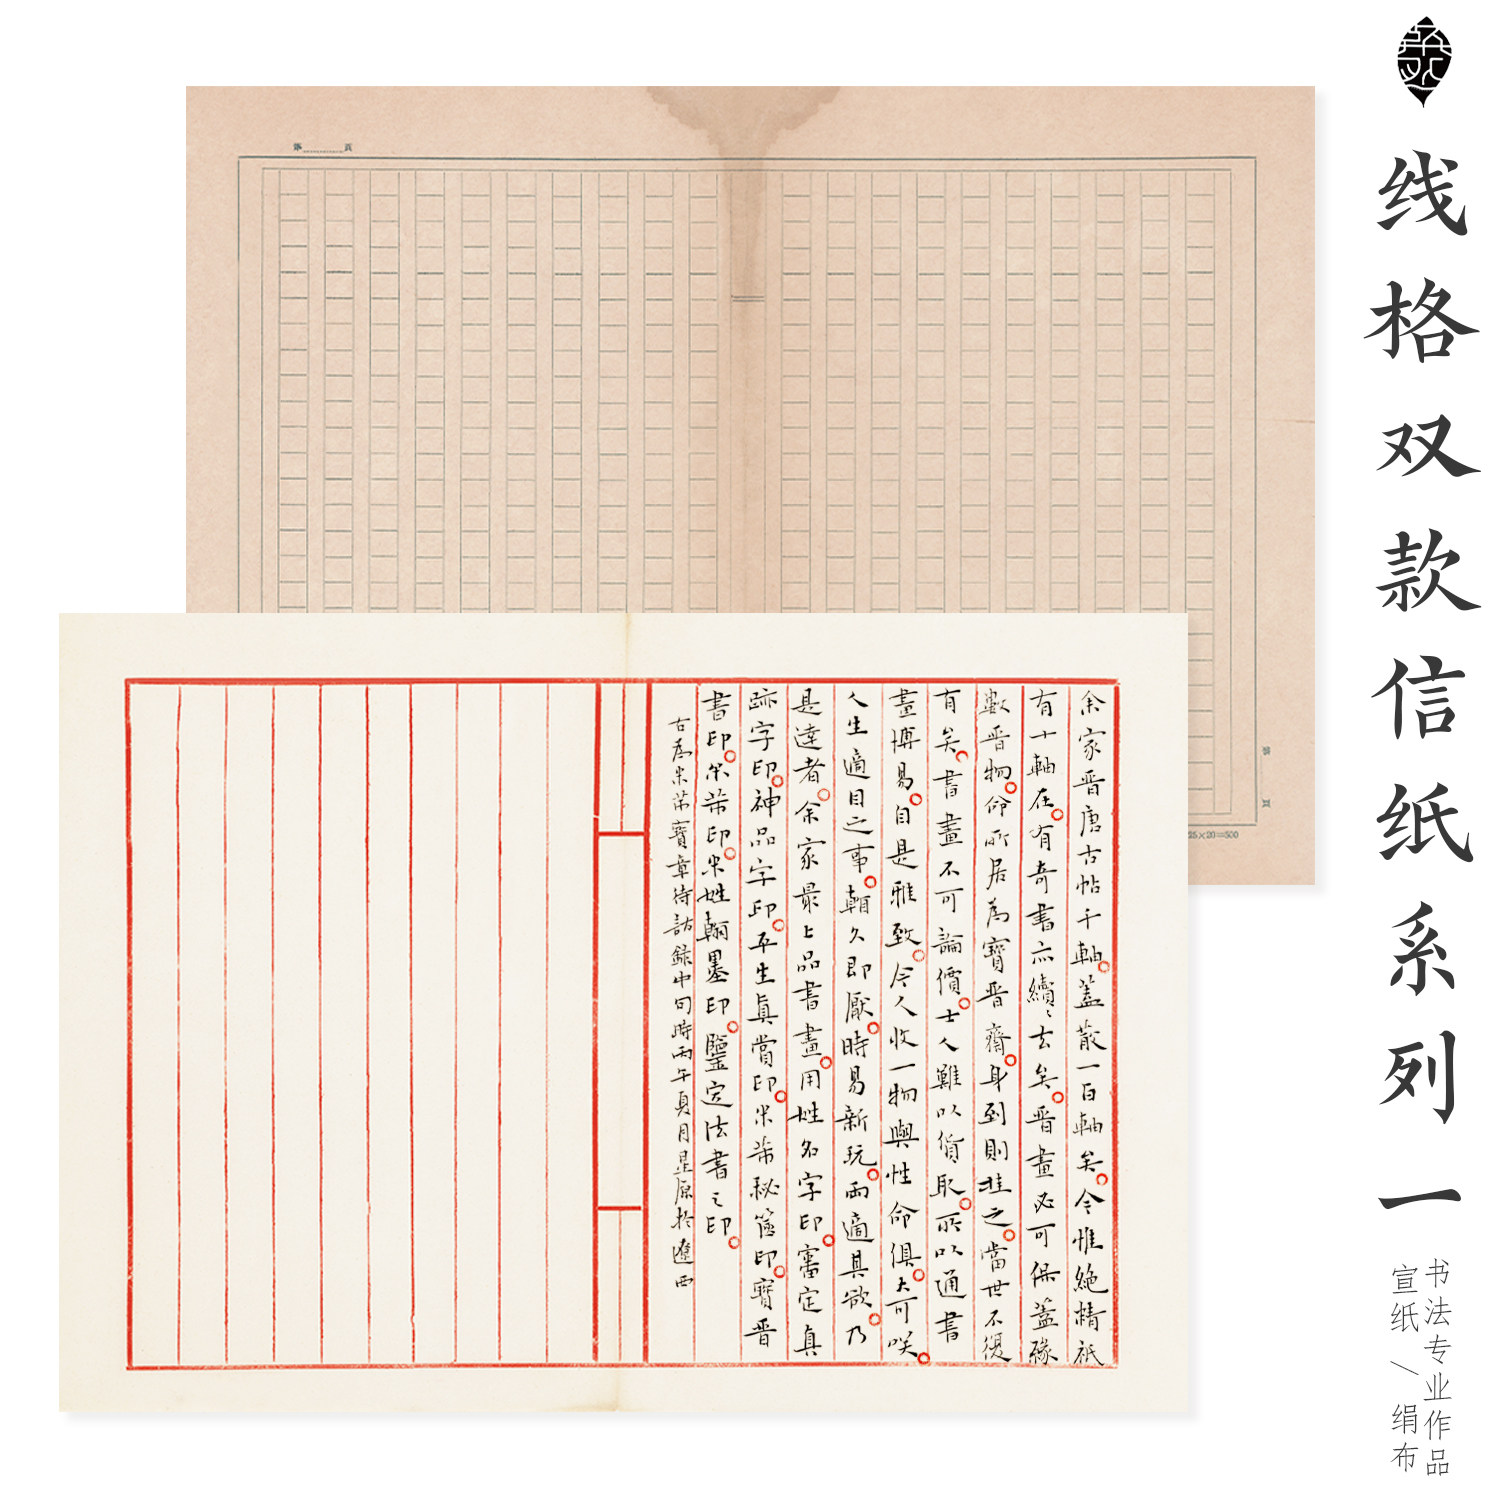 线格双款信纸系列一
书法专业作品
宣纸/绢布
第 頁
第 頁
25×20=500
余家晋唐古帖千軸蓋散一百軸矣今惟絶精祇
有十軸在有奇書亦續々去矣晋畫必可保蓋緣
數晋物命所居為寶晋齋身到則挂之當世不復
有矣書畫不可論價士人難以貨取所以通書
畫博易自是雅致今人收一物與性命俱大可咲
人生適目之事輒久即厭時易新玩兩適其欲乃
是達者余家最上品書畫用姓名字印審定真
跡字印神品字印平生真賞印米芾秘篋印寶晋
書印米芾印米姓翰墨印鑒定法書之印
右為米芾寶章待訪録中句時丙午夏月星原於遼西